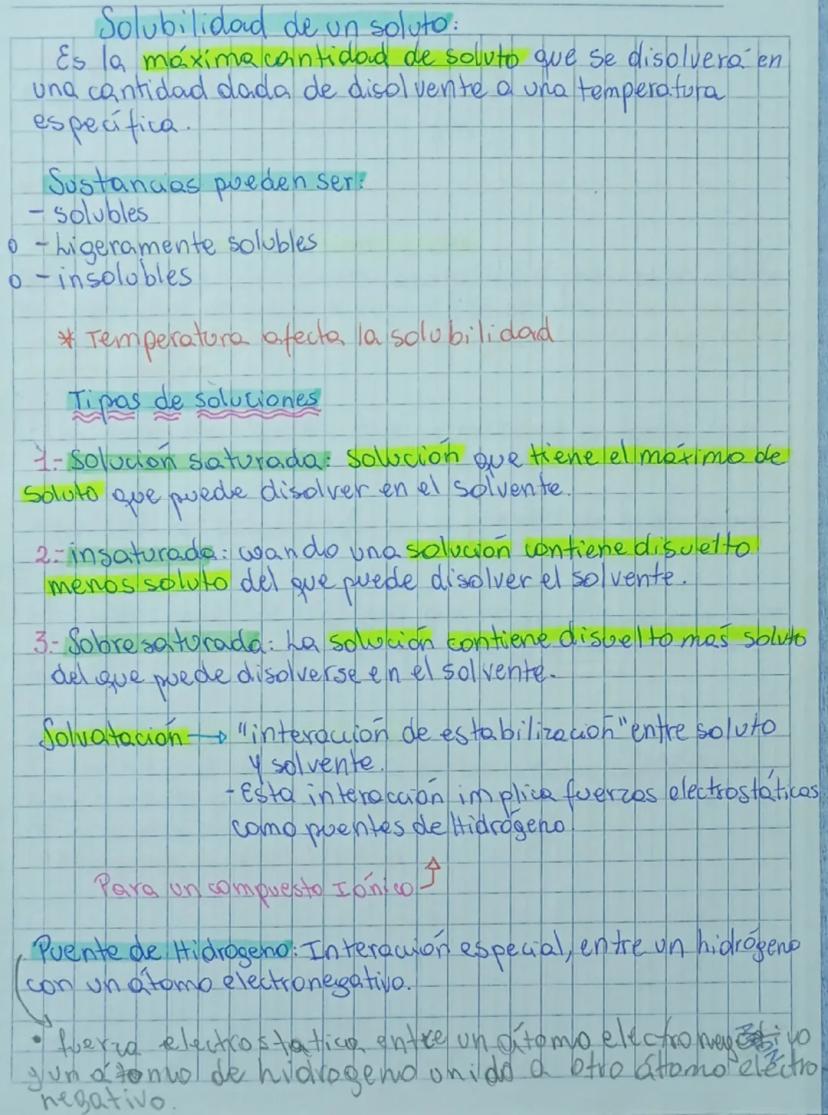 Solubilidad de un soluto:
Es la máxima cantidad de soluto que se disolverá en
una cantidad dada de disolvente a una temperatura
específica.
Sustancias pueden ser:
- solubles
o - Ligeramente solubles
o - insolubles
* Temperatura afecta la solubilidad
Tipos de soluciones
1.- Solución saturada: solución que tiene el máximo de
soluto que puede disolver en el solvente.
2.- insaturada: cuando una solución contiene disuelto
menos soluto del que puede disolver el solvente.
3.- Sobresaturada: La solución contiene disuelto más soluto
del que puede disolverse en el solvente.
Solvatación → "interacción de estabilización" entre soluto
y solvente.
- Esta interacción implica fuerzas electrostáticas
como puentes de Hidrógeno
Para un compuesto Iónico ↑
Puente de Hidrogeno: Interacción especial, entre un hidrógeno
con un átomo electronegativo.
• fuerza electrostatica entre un átomo electronegativo
y un átomo de hidrogeno unido a otro átomo electro
negativo.